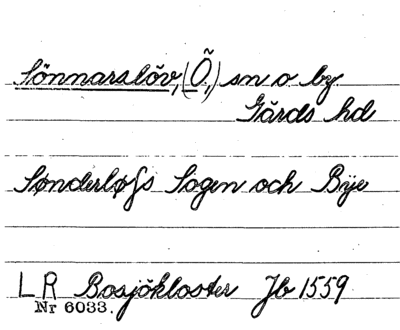 Sönnarslöv, (Ö.,) sn o. by
Gärds hd
Sønderløfs Sogen och Bÿe
LR Bosjökloster Jb 1559
Nr 6033.